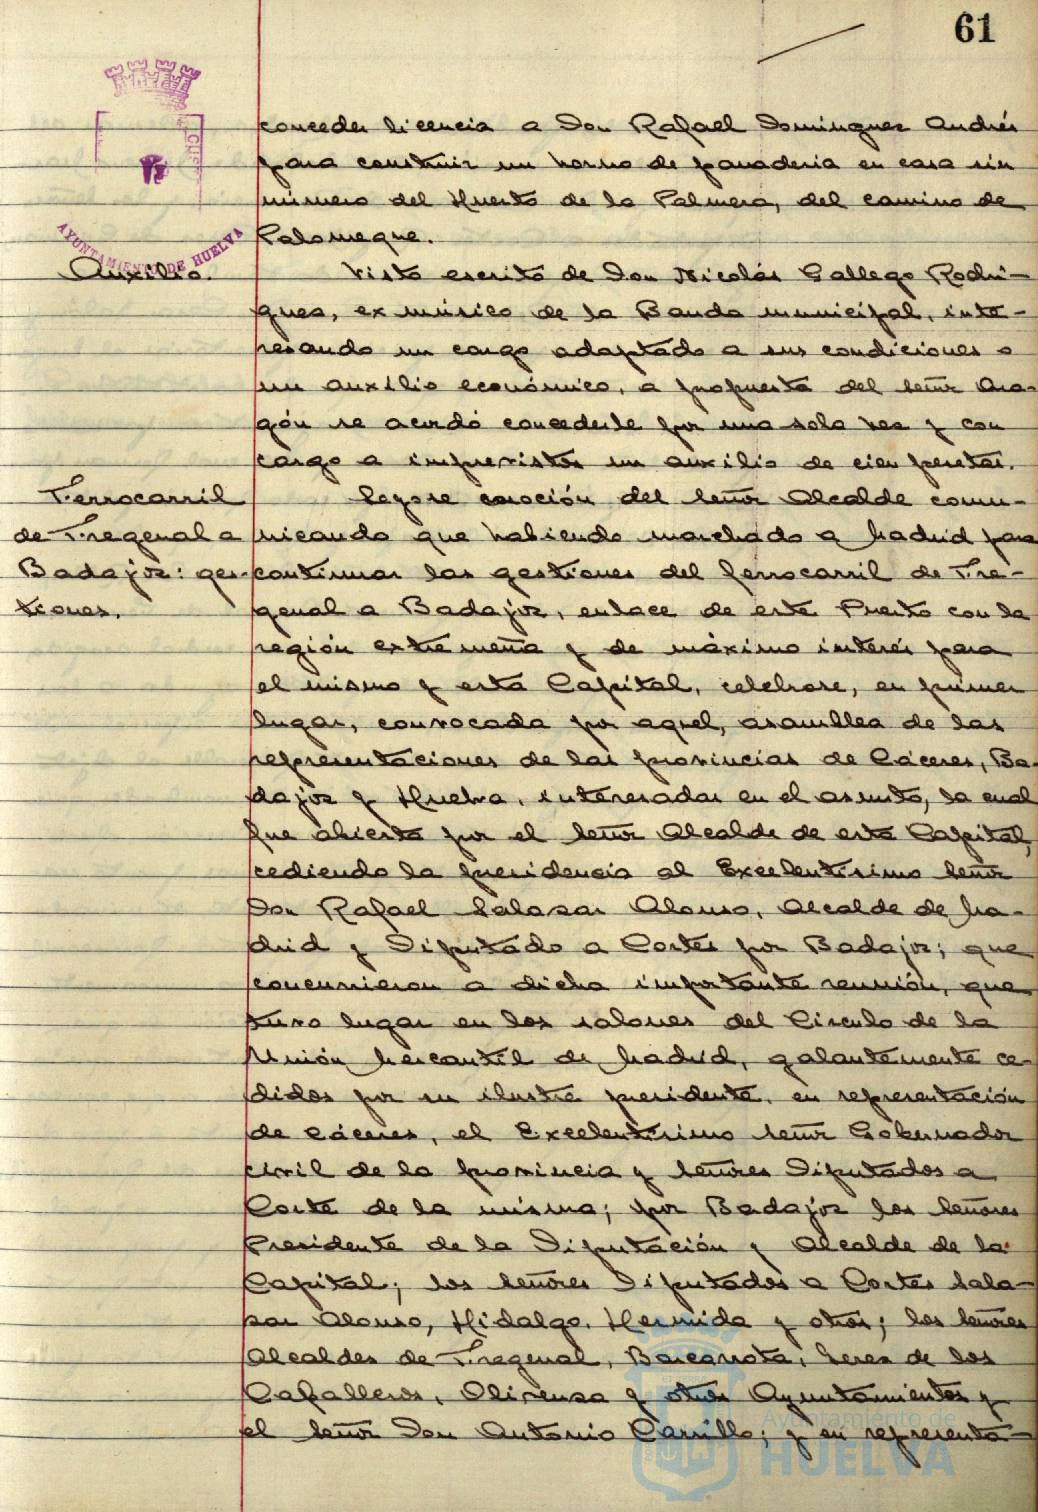 61
AYUNTAMIENTO DE HUELVA
conceder licencia a Don Rafael Dominguez Andrés
para construir un horno de panaderia en casa sin
número del Huerto de la Palmera, del camino de
Palomeque.
Auxilio.
Visto escrito de Don Nicolás Gallego Rodri-
guez, ex músico de la Banda municipal, inte-
resando un cargo adaptado a sus condiciones o
un auxilio económico, a propuesta del señor Ara-
gón se acordó concederle por una sola vez y con
cargo a imprevistos un auxilio de cien pesetas.
Ferrocarril
de Fregenal a
Badajoz: ges-
tiones.
Leyose moción del señor Alcalde comu-
nicando que habiendo marchado a Madrid para
continuar las gestiones del ferrocarril de Fre-
genal a Badajoz, enlace de este Puerto con la
región extremeña y de máximo interés para
el mismo y esta Capital, celebrose, en primer
lugar, convocada por aquel, asamblea de las
representaciones de las provincias de Cáceres, Ba-
dajoz y Huelva, interesadas en el asunto, la cual
fue abierta por el señor Alcalde de esta Capital,
cediendo la presidencia al Excelentísimo señor
Don Rafael Salazar Alonso, Alcalde de Ma-
drid y Diputado a Cortes por Badajoz; que
concurrieron a dicha importante reunión, que
tuvo lugar en los salones del Circulo de la
Unión Mercantil de Madrid, galantemente ce-
didos por su ilustre presidente, en representación
de Cáceres, el Excelentísimo señor Gobernador
civil de la provincia y señores Diputados a
Corte de la misma; por Badajoz los señores
Presidente de la Diputación y Alcalde de la
Capital; los señores Diputados a Cortes Sala-
zar Alonso, Hidalgo, Hermida y otros; los señores
Alcaldes de Fregenal, Barcarrota, Jerez de los
Caballeros, Olivenza y otros Ayuntamientos y
el señor Don Antonio Carrillo; y en representa-
Ayuntamiento de
HUELVA